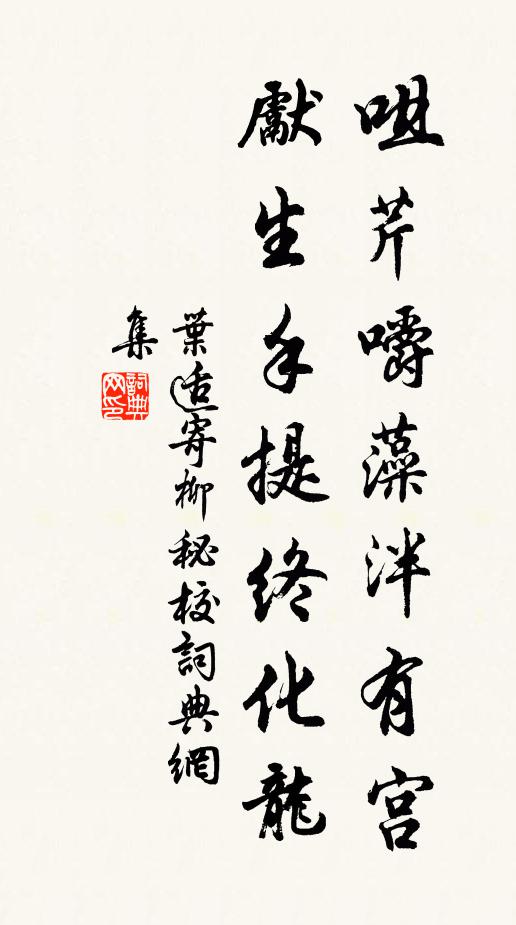 咀芹嚼藻泮有宫
獻生手提終化龍
葉适寄柳秘校詞典網
集
詞典
网印